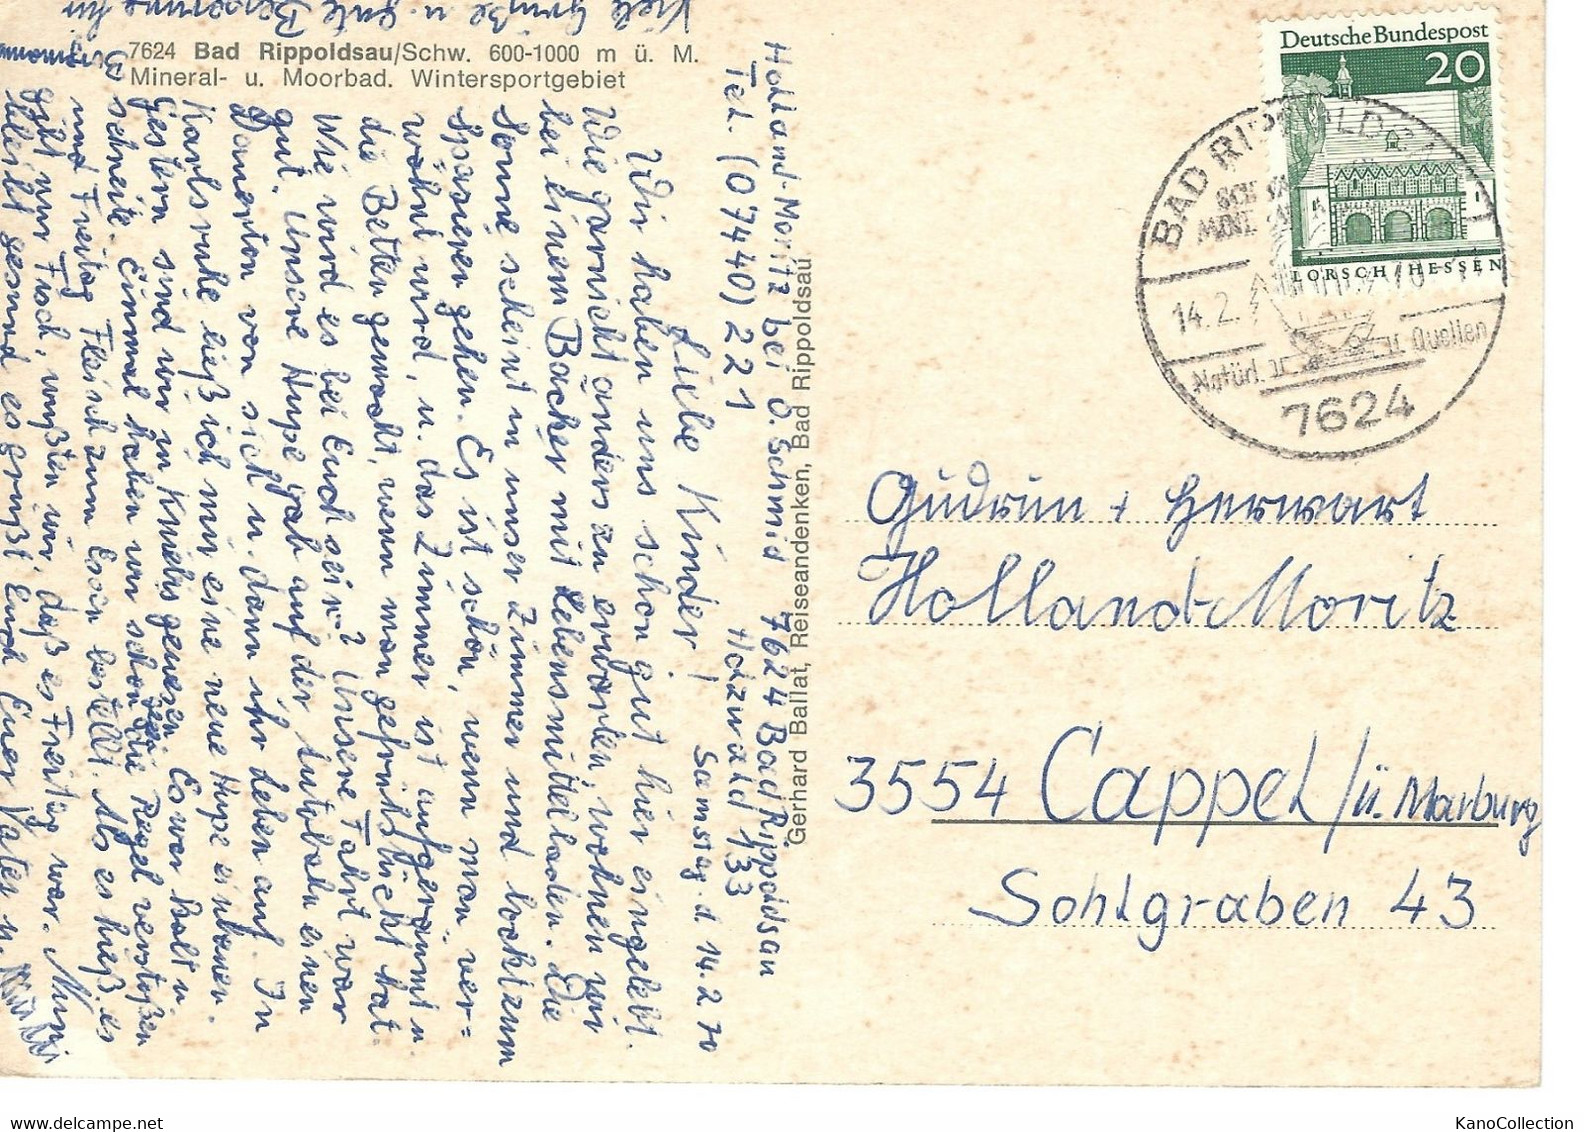 Viele Grüße u. gute Besserung für
7624 Bad Rippoldsau/Schw. 600-1000 m ü. M.
Mineral- u. Moorbad. Wintersportgebiet
Holland-Moritz bei O. Schmid 7624 Bad Rippoldsau
Tel. (07440) 221 Holzwald 133
Samstag. d. 14.2.70
Liebe Kinder!
Wir haben uns schon gut hier eingelebt.
Wie garnicht anders zu erwarten, wohnen wir
bei einem Bäcker mit Lebensmittelladen. Die
Sonne scheint in unser Zimmer und lockt zum
Spazieren gehen. Es ist schön, wenn man ver=
wöhnt wird, u. das Zimmer ist aufgeräumt u.
die Betten gemacht, wenn man gefrühstückt hat.
Wie wird es bei Euch sein? Unsere Fahrt war
gut. Unsere Hupe gab auf der Autobahn einen
Dauerton von sich u. dann ihr Leben auf. In
Karlsruhe ließ ich mir eine neue Hupe einbauen.
Gestern sind wir in Kniebis gewesen. Es war kalt u.
schneite. Einmal haben wir schon gegen die Regel verstoßen
und Freitag Fleisch zum Essen bestellt. Als es hieß, es
gibt nur Fisch, wußten wir, daß es Freitag war.
bleibt gesund es grüßt Euch Euer Vater u. Mutti
Gerhard Ballat, Reiseandenken, Bad Rippoldsau
Deutsche Bundespost
20
LORSCH HESSEN
BAD RIPPOLDSAU
14.2.70
Natürl. u. Quellen
7624
Gudrun + Herwart
Holland-Moritz
3554 Cappel/ü. Marburg
Sohlgraben 43
www.delcampe.net
KanoCollection